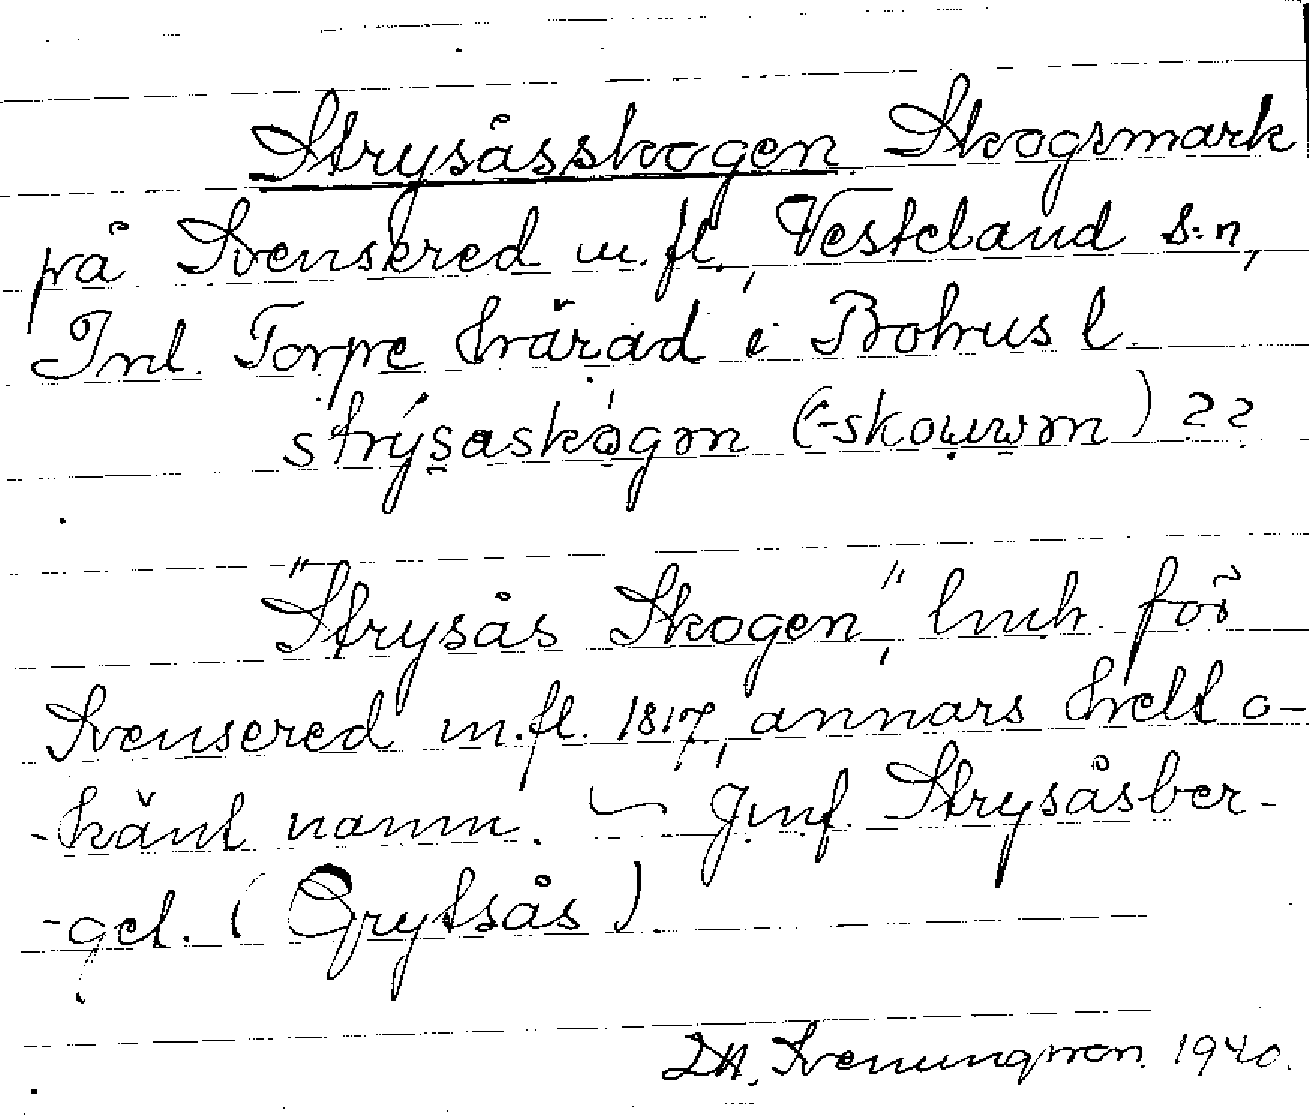 Strysåsskogen Skogsmark
på Svensered m.fl., Vesteland s:n,
Inl. Torpe härad i Bohus l.
strýsaskògm (-skouwm) 22
"Strysås Skogen", hmh. för
Svensered m.fl. 1817, annars helt o-
-känt namn. ~ Jmf. Strysåsber-
-get. (Grytsås)
Svenungsson 1940.